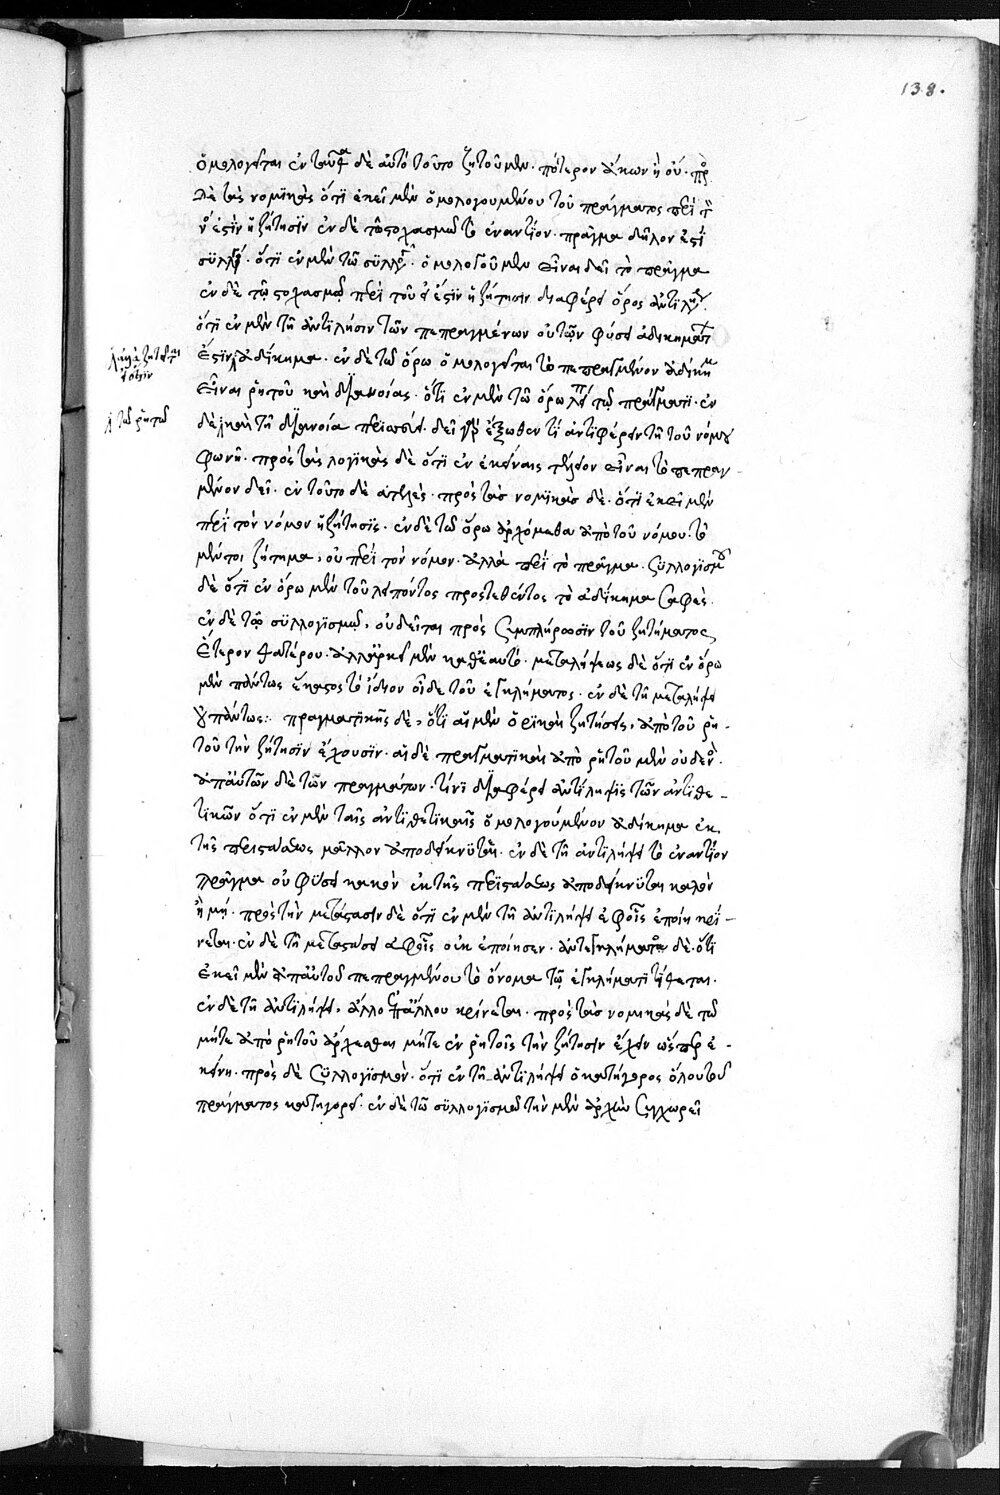 138.
ὁμολογεῖται ἐν ταύτη δὲ αὐτὸ τοῦτο ζητοῦμεν. πότερον ἄκων ἢ οὔ. πρὸς
δὲ τὰς νομικὰς ὅτι ἐκεῖ μὲν ὁμολογουμένου τοῦ πράγματος περὶ
ἐστιν ἡ ζήτησιν ἐν δὲ τῶ στοχασμῶ τὸ ἐναντίον. πρᾶγμα δῆλον ἐστὶ
συλλογ. ὅτι ἐν μὲν τῶ συλλογ. ὁμολογοῦμεν εἶναι δεῖ τὸ πρᾶγμα
ἐν δὲ τῷ στοχασμῷ περὶ τοῦ εἰ ἔστιν ἡ ζήτησιν διαφέρει ὅρος ἀντιλήψ.
ὅτι ἐν μὲν τῆ ἀντιλήσιν τῶν πεπραγμένων οὕτω φύσει ἀδικηματ
ἐστιν ἀδίκημα. ἐν δὲ τῶ ὅρω ὁμολογεῖται τὸ πεπραγμένον ἀδίκημα
εἶναι ῥητοῦ καὶ διανοίας. ὅτι ἐν μὲν τῶ ὅρω λείπει τῷ πράγματι. ἐν
δὲ καὶ τῆ διανοία περισσεύει. δεῖ γὰρ ἔξωθεν τι ἀντιφέρειν τῆ τοῦ νόμου
φωνῆ. πρὸς τὰς λογικὰς δὲ ὅτι ἐν ἐκείναις τέλειον εἶναι τὸ πεπραγ-
μένον δεῖ. ἐν τοῦτο δὲ ἀτελές. πρὸς τὰσ νομικὰσ δὲ. ὅτι ἐκεῖ μὲν
περὶ τὸν νόμον ἡ ζήτησις. ἐν δὲ τῶ ὅρω ἀρχόμεθα ἀπὸ τοῦ νόμου. τὸ
μέντοι ζήτημα, οὐ περὶ τὸν νόμον. ἀλλὰ περὶ τὸ πρᾶγμα. συλλογισμοῦ
δὲ ὅτι ἐν ὅρω μὲν τοῦ λείποντος προστεθέντος τὸ ἀδίκημα σαφὲς.
ἐν δὲ τῷ συλλογισμῷ, οὐ δεῖται πρὸς συμπλήρωσιν τοῦ ζητήματος
ἕτερον θατέρου. ἀλλ' ἀρκεῖ μὲν καθ' ἑαυτό. μεταλήψεως δὲ ὅτι ἐν ὅρω
μὲν πάντως ἕκαστος τὸ ἴδιον οἶδε τοῦ ἐγκλήματος. ἐν δὲ τῆ μεταλήψει
οὐ πάντως: πραγματικῆς δὲ, ὅτι αἱ μὲν ὁρικαὶ ζητήσεις, ἀπὸ τοῦ ῥη-
τοῦ τὴν ζήτησιν ἔχουσιν. αἱ δὲ πραγματικαὶ ἀπὸ ῥητοῦ μὲν οὐδενός.
ἀπ' αὐτῶν δὲ τῶν πραγμάτων. τίνι διαφέρει ἀντίληψις τῶν ἀντιθε-
τικῶν ὅτι ἐν μὲν ταῖς ἀντιθετικαῖς ὁμολογούμενον ἀδίκημα ἐκ
τῆς περιστάσεως μᾶλλον ἀποδείκνυται. ἐν δὲ τῆ ἀντιλήψει τὸ ἐναντίον
πρᾶγμα οὐ φύσει κακὸν ἐκ τῆς περιστάσεως ἀποδείκνυται καλὸν
ἢ μή. πρὸς τὴν μετάστασιν δὲ ὅτι ἐν μὲν τῆ ἀντιλήψει ἐφ' οἷς ἐποίη κρί-
νεται. ἐν δὲ τῆ μεταστάσει ἀφ' οἷς οὐκ ἐποίησεν. ἀντεγκλήματος δὲ. ὅτι
ἐκεῖ μὲν ἀπ' αὐτοῦ πεπραγμένου τὸ ὄνομα τῶ ἐγκλήματι τίθεται.
ἐν δὲ τῆ ἀντιλήψει, ἄλλο ἐπ' ἄλλου κρίνεται. πρὸς τὰσ νομικὰς δὲ τῶ
μήτε ἀπὸ ῥητοῦ ἄρχεσθαι μήτε ἐν ῥητοῖς τὴν ζήτησιν ἔχειν ὥσπερ ἐ-
κείνη. πρὸς δὲ συλλογισμὸν. ὅτι ἐν τῆ ἀντιλήψει ὁ κατήγορος ὅλου τοῦ
πράγματος κατηγορεῖ. ἐν δὲ τῶ συλλογισμῶ τὴν μὲν ἀρχὴν συγχωρεῖ
τῶ ῥητῶ